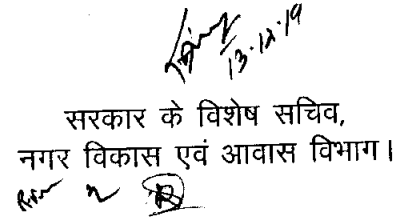 13.12.19
सरकार के विशेष सचिव,
नगर विकास एवं आवास विभाग।